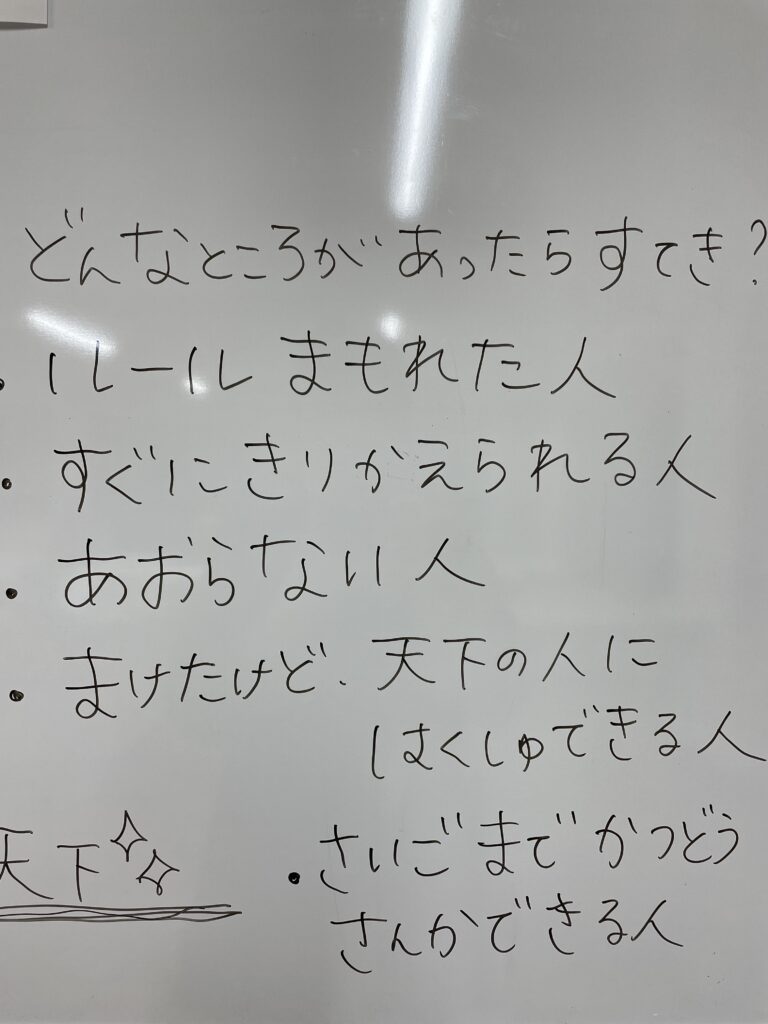 どんなところがあったらすてき?
・ルールまもれた人
・すぐにきりかえられる人
・あおらない人
・まけたけど、天下の人に
はくしゅできる人
天下
・さいごまでかつどう
さんかできる人